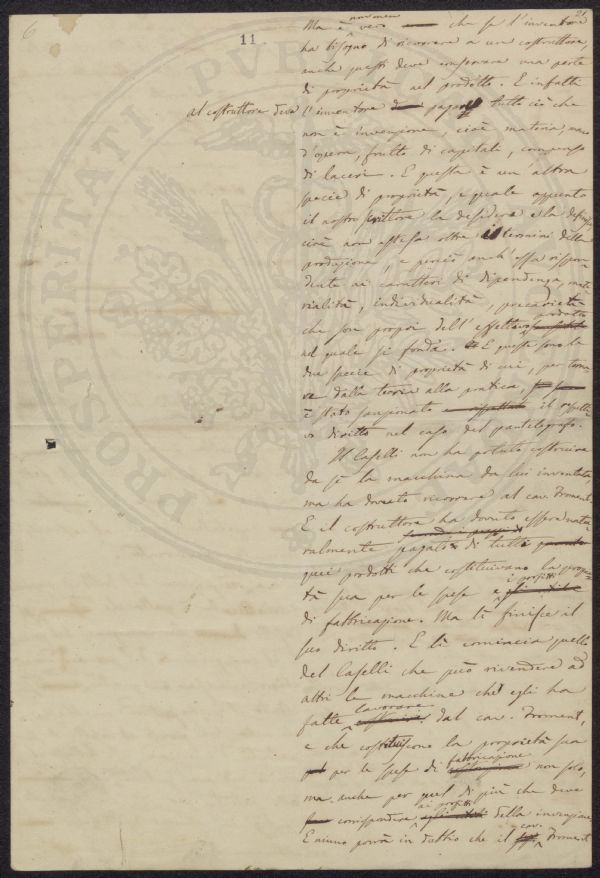 6
21
11.
nommen
Ma è vero che se l'inventore
ha bisogno di ricorrere a un costruttore,
anche questi deve conservare una parte
di proprietà nel prodotto. E infatti
al costruttore deve
l'inventore pagare tutto ciò che
non è invenzione, cioè materia, mano
d'opera, frutto di capitali, compenso
di lucri. E questa è un altra
specie di proprietà, e quale appunto
il nostro scrittore la desidera e la definisce
cioè non estesa oltre il termini della
produzione, e perciò anch'essa rispon
dente ai caratteri di dipendenza, mate
rialità, individualità, precarietà
che son propri dell'effettivo prodotto
nel quale si fonda. E queste sono le
due specie di proprietà di cui, per torna
re dalla teoria alla pratica,
è stato sanzionato il rispetti
vo diritto nel caso del pantelegrafo.
Il Caselli non ha potuto costruire
da se la macchina da lui inventata,
ma ha dovuto ricorrere al cav. Froment
E il costruttore ha dovuto essere natu
ralmente pagato di tutti
quei prodotti che costituivano la proprie
tà sua per le spese e i profitti
di fabbricazione. Ma lì finisce il
suo diritto. E lì comincia quello
del Caselli che può rivendere ad
altri le macchine che egli ha
fatte lavorare dal cav. Froment,
e che costituiscono la proprietà sua
per le spese di fabbricazione non solo,
ma anche per quel di più che deve
corrispondere ai profitti della invenzione.
E niuno porrà in dubbio che il cav. Froment
PROSPERITATI PVBLI